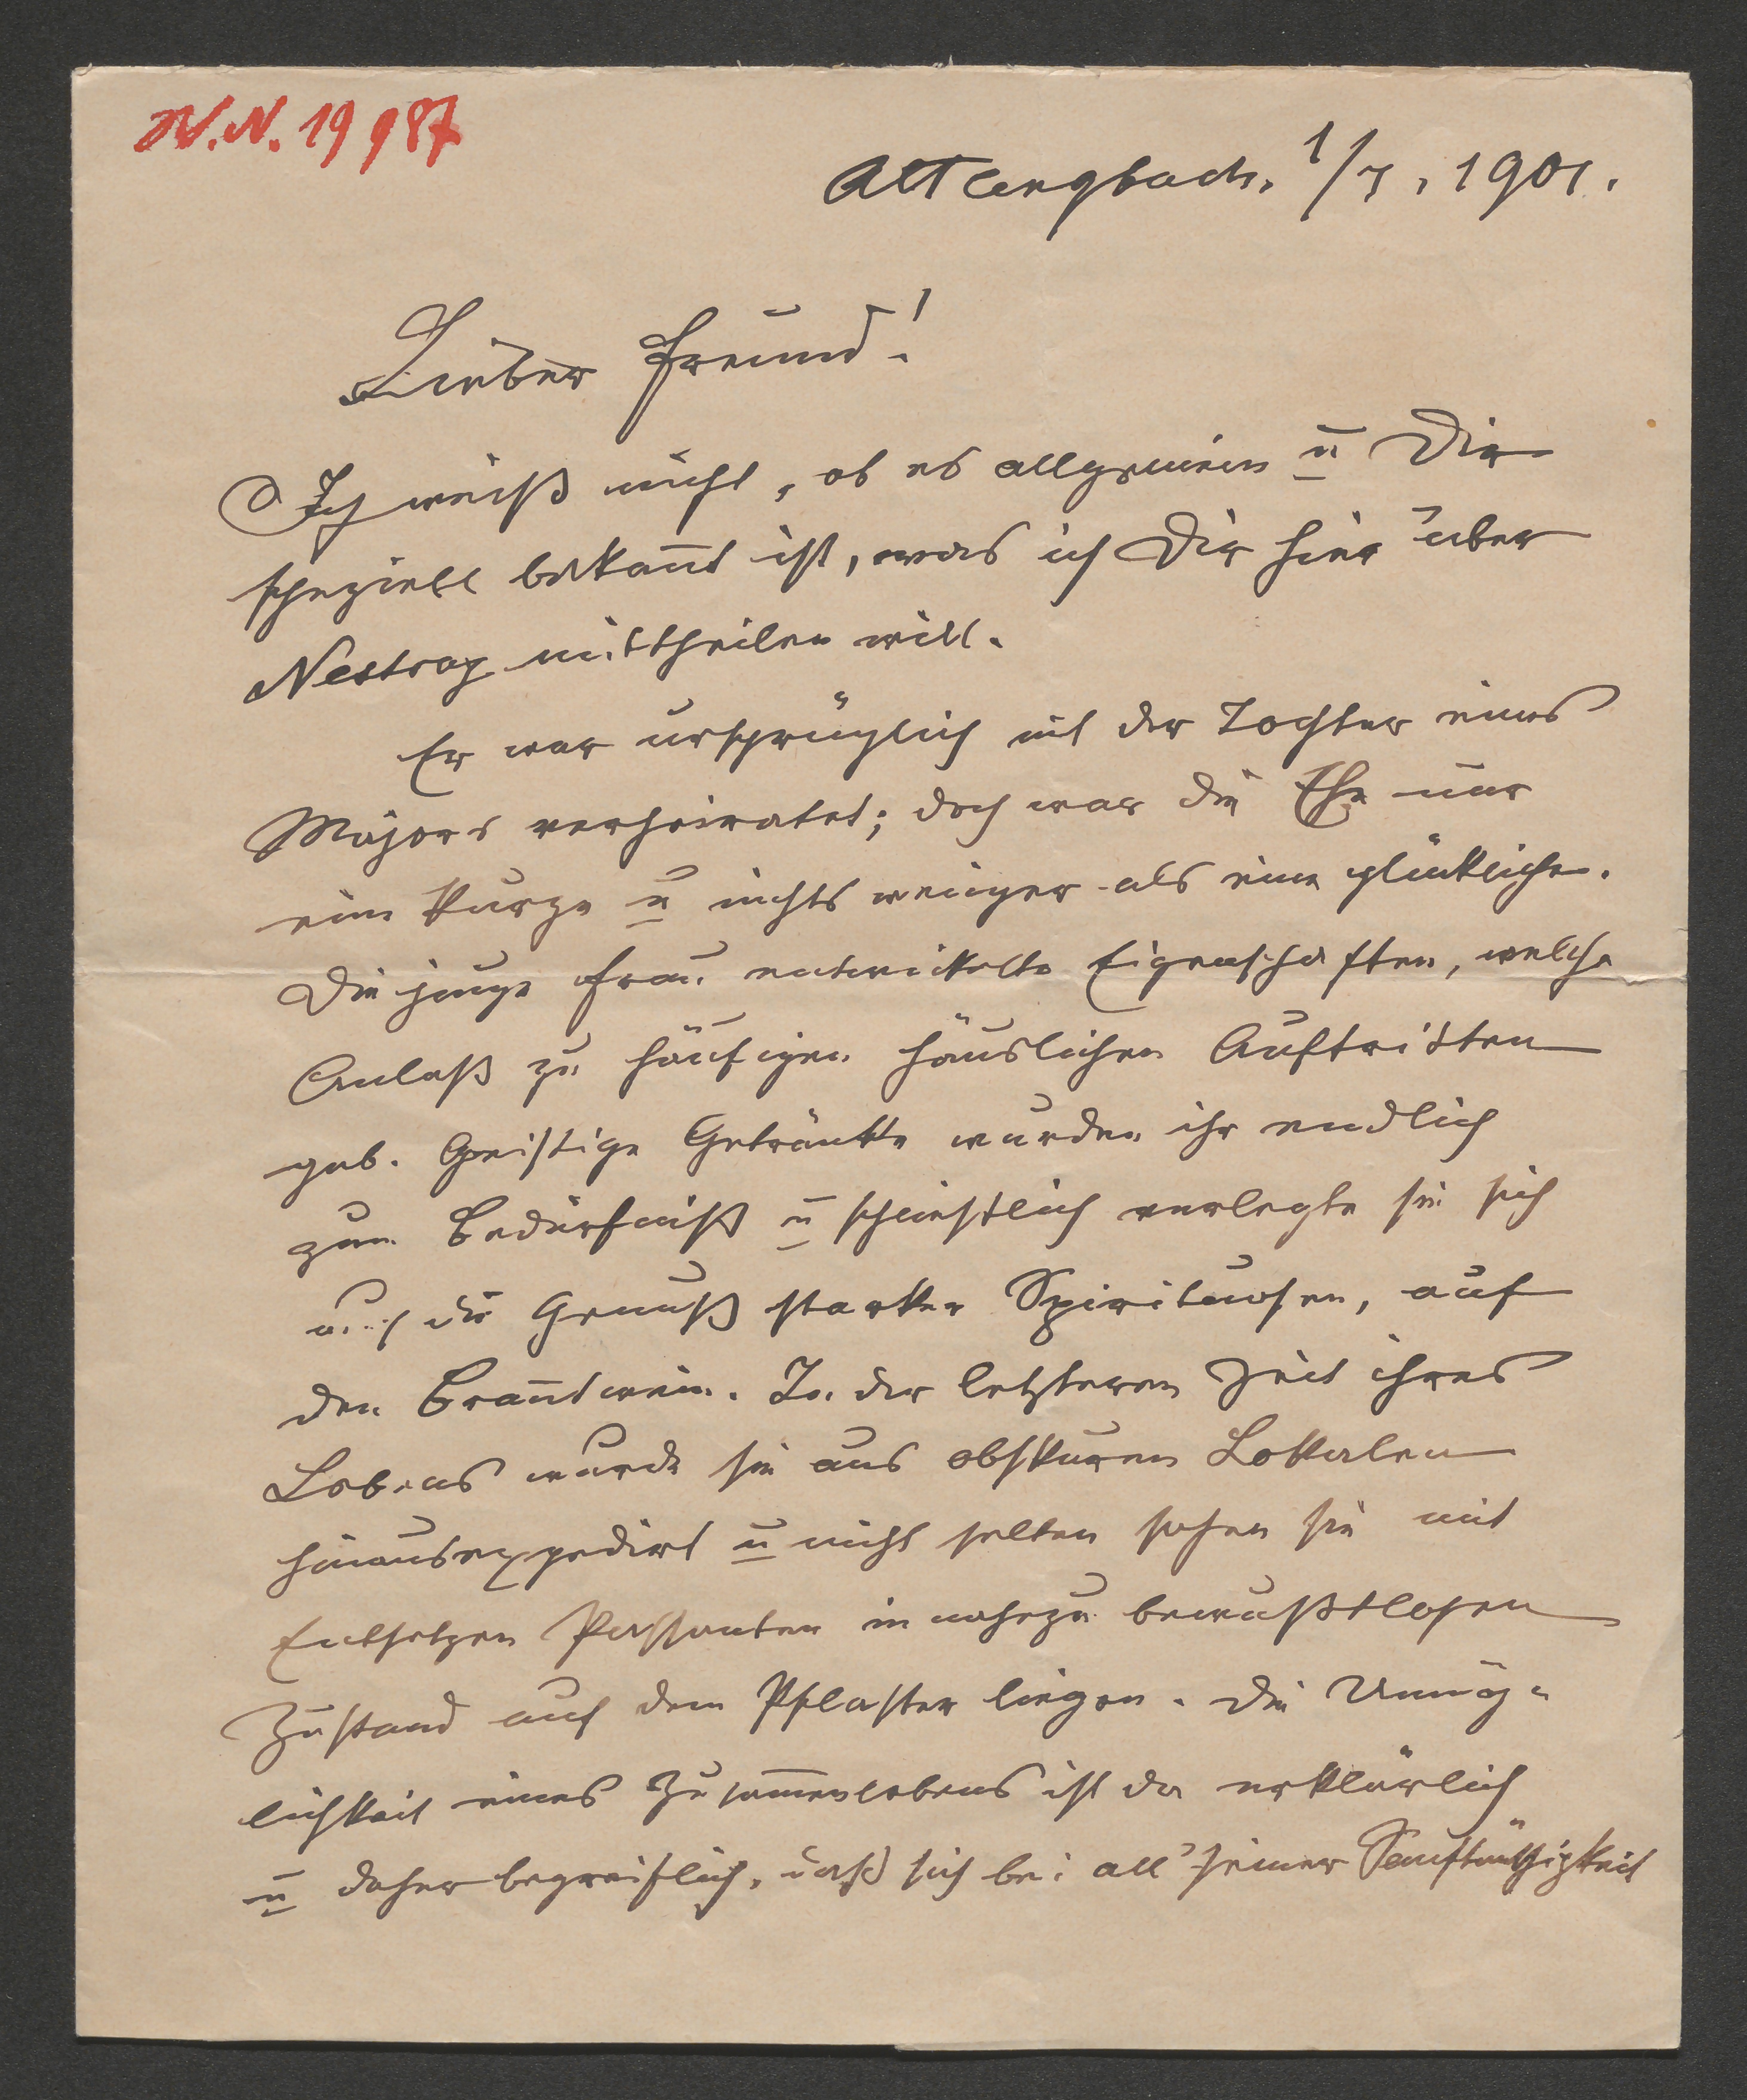 N.N. 19987
Altlengbach, 1/7, 1901.
Lieber Freund!
Ich weiß nicht, ob es allgemein u Dir
speziell bekan̄t ist, was ich Dir hier über
Nestroy mittheilen will.
Er war ursprünglich mit der Tochter eines
Majors verheiratet; doch war die Ehe nur
eine kurze u nichts weniger als eine glückliche.
Die junge Frau entwickelte Eigenschaften, welche
Anlaß zu häufigen häuslichen Auftritten
gab. Geistige Getränke wurden ihr endlich
zum Bedürfniß u schließlich verlegte sie sich
auf die Genuß starker Spirituosen, auf
den Bran̄twein. In der letzteren Zeit ihres
Lebens wurde sie aus obskuren Lokalen
hinausexpedirt u nicht selten sahen sie mit
Entsetzen Passanten in nahezu bewußtlosen
Zustand auf dem Pflaster liegen. Die Unmög-
lichkeit eines Zusam̄enlebens ist da erklärlich
u daher begreiflich, daß sich bei all' seiner Sanftmüthigkeit